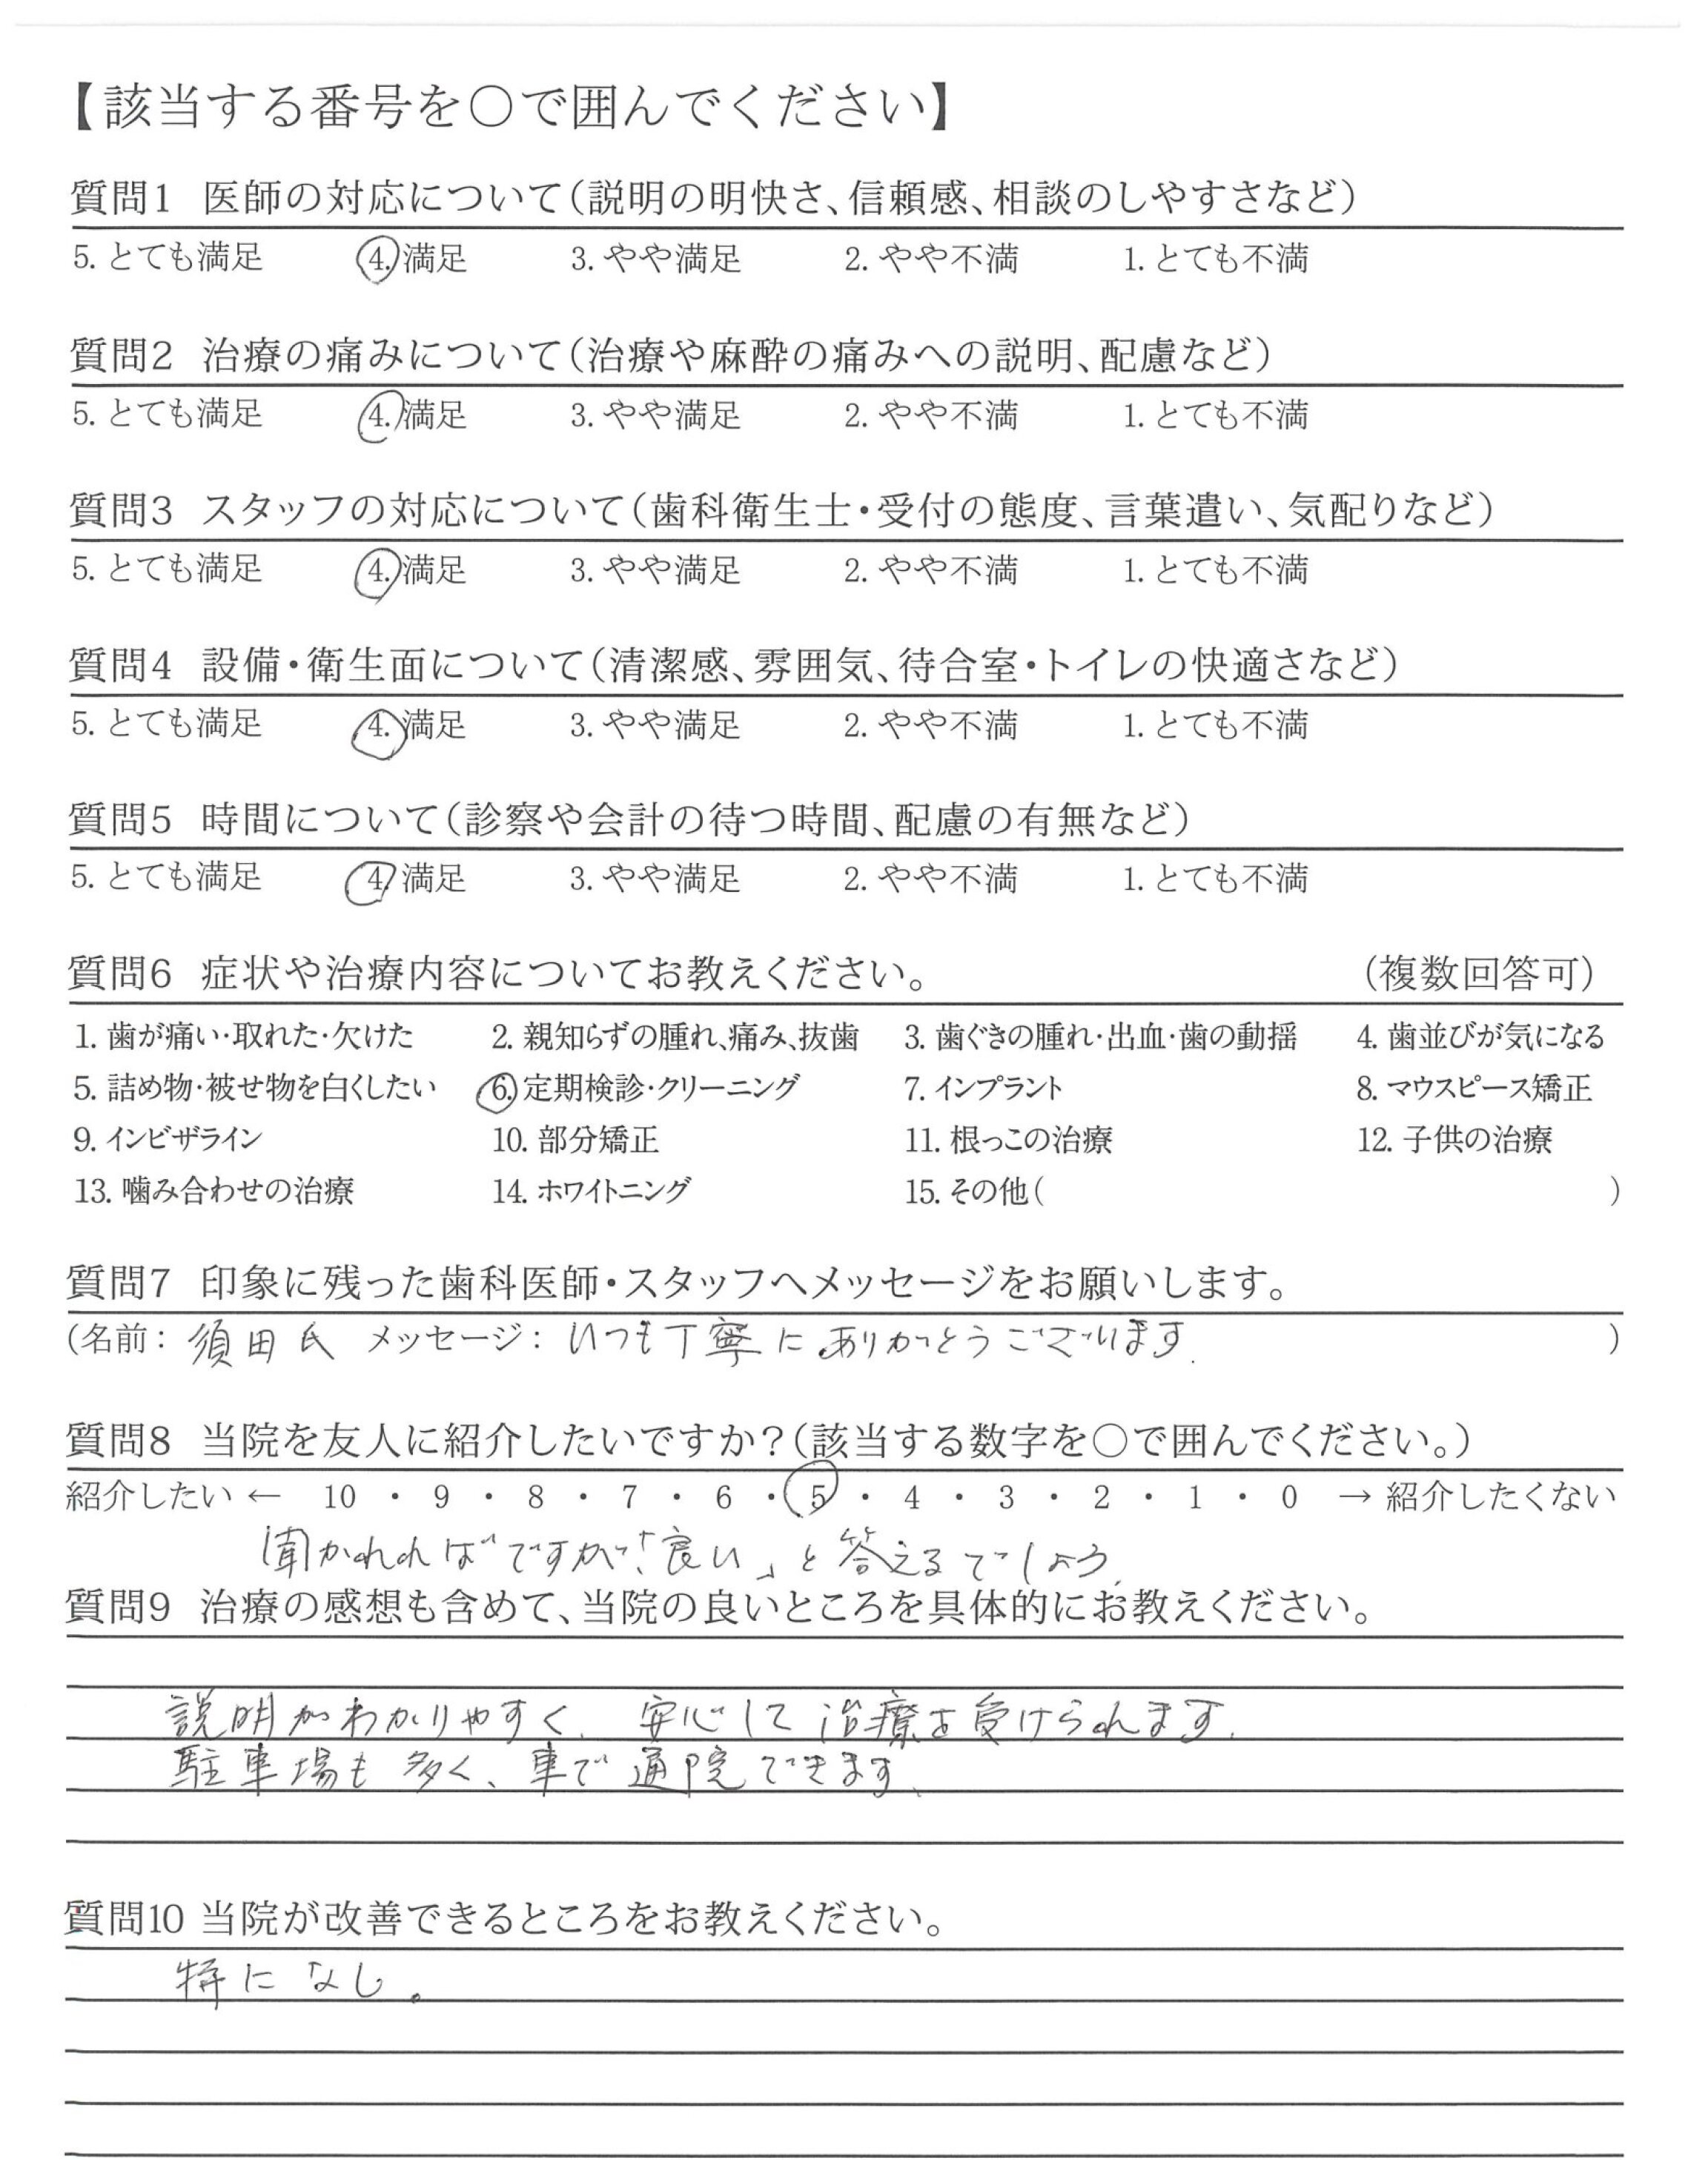 【該当する番号を○で囲んでください】
質問1 医師の対応について(説明の明快さ、信頼感、相談のしやすさなど)
5. とても満足 4. 満足 3. やや満足 2. やや不満 1. とても不満
質問2 治療の痛みについて(治療や麻酔の痛みへの説明、配慮など)
5. とても満足 4. 満足 3. やや満足 2. やや不満 1. とても不満
質問3 スタッフの対応について(歯科衛生士・受付の態度、言葉遣い、気配りなど)
5. とても満足 4. 満足 3. やや満足 2. やや不満 1. とても不満
質問4 設備・衛生面について(清潔感、雰囲気、待合室・トイレの快適さなど)
5. とても満足 4. 満足 3. やや満足 2. やや不満 1. とても不満
質問5 時間について(診察や会計の待つ時間、配慮の有無など)
5. とても満足 4. 満足 3. やや満足 2. やや不満 1. とても不満
質問6 症状や治療内容についてお教えください。 (複数回答可)
1. 歯が痛い・取れた・欠けた 2. 親知らずの腫れ、痛み、抜歯 3. 歯ぐきの腫れ・出血・歯の動揺 4. 歯並びが気になる
5. 詰め物・被せ物を白くしたい 6. 定期検診・クリーニング 7. インプラント 8. マウスピース矯正
9. インビザライン 10. 部分矯正 11. 根っこの治療 12. 子供の治療
13. 噛み合わせの治療 14. ホワイトニング 15. その他( )
質問7 印象に残った歯科医師・スタッフへメッセージをお願いします。
(名前: 須田氏 メッセージ: いつも丁寧にありがとうございます. )
質問8 当院を友人に紹介したいですか?(該当する数字を○で囲んでください。)
紹介したい ← 10 ・ 9 ・ 8 ・ 7 ・ 6 ・ 5 ・ 4 ・ 3 ・ 2 ・ 1 ・ 0 → 紹介したくない
聞かれればですが「良い」と答えるでしょう.
質問9 治療の感想も含めて、当院の良いところを具体的にお教えください。
説明がわかりやすく、安心して治療を受けられます.
駐車場も多く、車で通院できます、
質問10 当院が改善できるところをお教えください。
特になし。